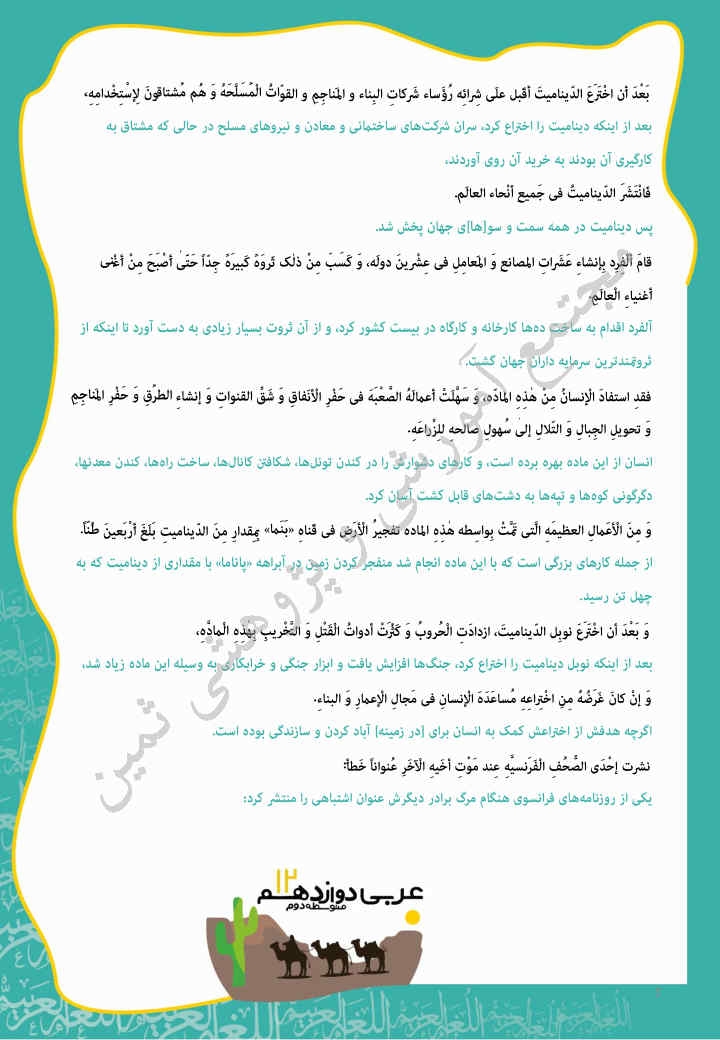 بَعْدَ أن اخْتَرَعَ الدّینامیتَ أقبل علَی شِرائِه رُؤَساء شَرکاتِ البِناء و المَناجِم و القوّاتُ الْمُسَلَّحَهُ وَ هُم مُشتاقونَ لِإسْتِخْدامِهِ،
بعد از اینکه دینامیت را اختراع کرد، سران شرکت‌های ساختمانی و معادن و نیروهای مسلح در حالی که مشتاق به
کارگیری آن بودند به خرید آن روی آوردند،
فَانْتَشَرَ الدّینامیتُ فی جَمیعِ أنْحاء العالَم.
پس دینامیت در همه سمت و سو[ها]ی جهان پخش شد.
قامَ ألْفِرِد بِإنشاءِ عَشَراتِ المصانع وَ المَعامِلِ فی عِشْرینَ دوله، وَ کَسَبَ مِنْ ذلک ثَروَهً کَبیرَهً جِدّاً حَتّیٰ أصْبَحَ مِنْ أغْنی
أغنیاءِ الْعالَمِ.
آلفرد اقدام به ساخت ده‌ها کارخانه و کارگاه در بیست کشور کرد، و از آن ثروت بسیار زیادی به دست آورد تا اینکه از
ثروتمندترین سرمایه داران جهان گشت.
فقدِ استفادَ الْإنسانُ مِنْ هٰذِهِ المادّه، وَ سَهَّلَتْ أعمالَهُ الصَّعْبَهَ فی حَفْرِ الْأنْفاقِ وَ شَقّ القنواتِ وَ إنشاءِ الطرُقِ وَ حَفْرِ المناجِمِ
وَ تحویلِ الجِبالِ وَ التّلالِ إلیٰ سُهولٍ صالحهِ للزِّراعَهِ.
انسان از این ماده بهره برده است، و کارهای دشوارش را در کندن تونل‌ها، شکافتن کانال‌ها، ساخت راه‌ها، کندن معدنها،
دگرگونی کوه‌ها و تپه‌ها به دشت‌های قابل کشت آسان کرد.
وَ مِنَ الْأعمالِ العظیمَهِ الَّتی تَمَّتْ بِواسِطه هٰذِهِ الماده تَفجیرُ الْأرَضِ فی قَناهِ «بَنَما» بِمِقدارٍ مِنَ الدّینامیتِ بَلَغَ أرْبَعینَ طُنّاً.
از جمله کارهای بزرگی است که با این ماده انجام شد منفجر کردن زمین در آبراهه «پاناما» با مقداری از دینامیت که به
چهل تن رسید.
وَ بَعْدَ أن اخْتَرَعَ نوبِل الدّینامیتَ، ازدادَتِ الْحُروبُ وَ کَثُرَتْ أدواتُ الْقَتْلِ وَ التَّخْریبِ بِهٰذِهِ الْمادَّهِ،
بعد از اینکه نوبل دینامیت را اختراع کرد، جنگ‌ها افزایش یافت و ابزار جنگی و خرابکاری به وسیله این ماده زیاد شد،
وَ إنْ کانَ غَرَضُهُ مِنِ اخْتِراعِهِ مُساعَدَهَ الْإنسانِ فی مَجالِ الْإعمارِ وَ البناءِ.
اگرچه هدفش از اختراعش کمک به انسان برای [در زمینه] آباد کردن و سازندگی بوده است.
نشرت إحْدَی الصُّحُفِ الْفَرَنسیَّهِ عِند مَوْتِ أخیهِ الْآخَرِ عُنواناً خَطأً:
یکی از روزنامه‌های فرانسوی هنگام مرگ برادر دیگرش عنوان اشتباهی را منتشر کرد:
مجتمع آموزشی پژوهشی ثمین
عربی دوازدهم ۱۲
متوسطه دوم